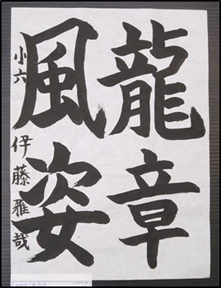 龍章
風姿
小六 伊藤雅哉